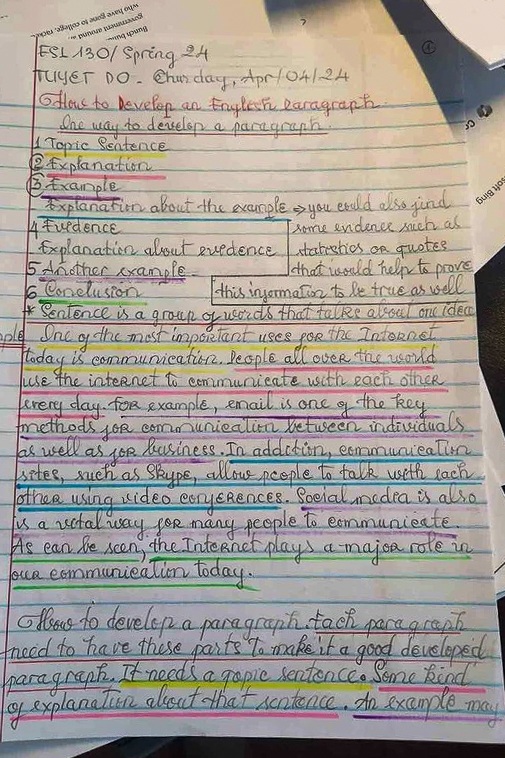 who have gone to college, race
government around
Bunch bun
ft Bing
①
ESL 130/ Spring 24
TUYET DO - Thurday, Apr/04/24
How to Develop an English Paragraph.
One way to develop a paragraph.
1 Topic Sentence
② Explanation
③ Example
Explanation about the example → you could also find
4 Evidence some evidence such as
Explanation about evidence statistics or quotes
5 Another example that would help to prove
6 Conclusion this information to be true as well
* Sentence is a group of words that talks about one idea
ple One of the most important uses for the Internet
today is communication. People all over the world
use the internet to communicate with each other
every day. For example, email is one of the key
methods for communication between individuals
as well as for business. In addiction, communication
sites, such as Skype, allow people to talk with each
other using video conferences. Social media is also
is a vital way for many people to communicate.
As can be seen, the Internet plays a major role in
our communication today.
How to develop a paragraph. Each paragraph
need to have these parts to make it a good developed
paragraph. It needs a topic sentence. Some kind
of explanation about that sentence. An example may